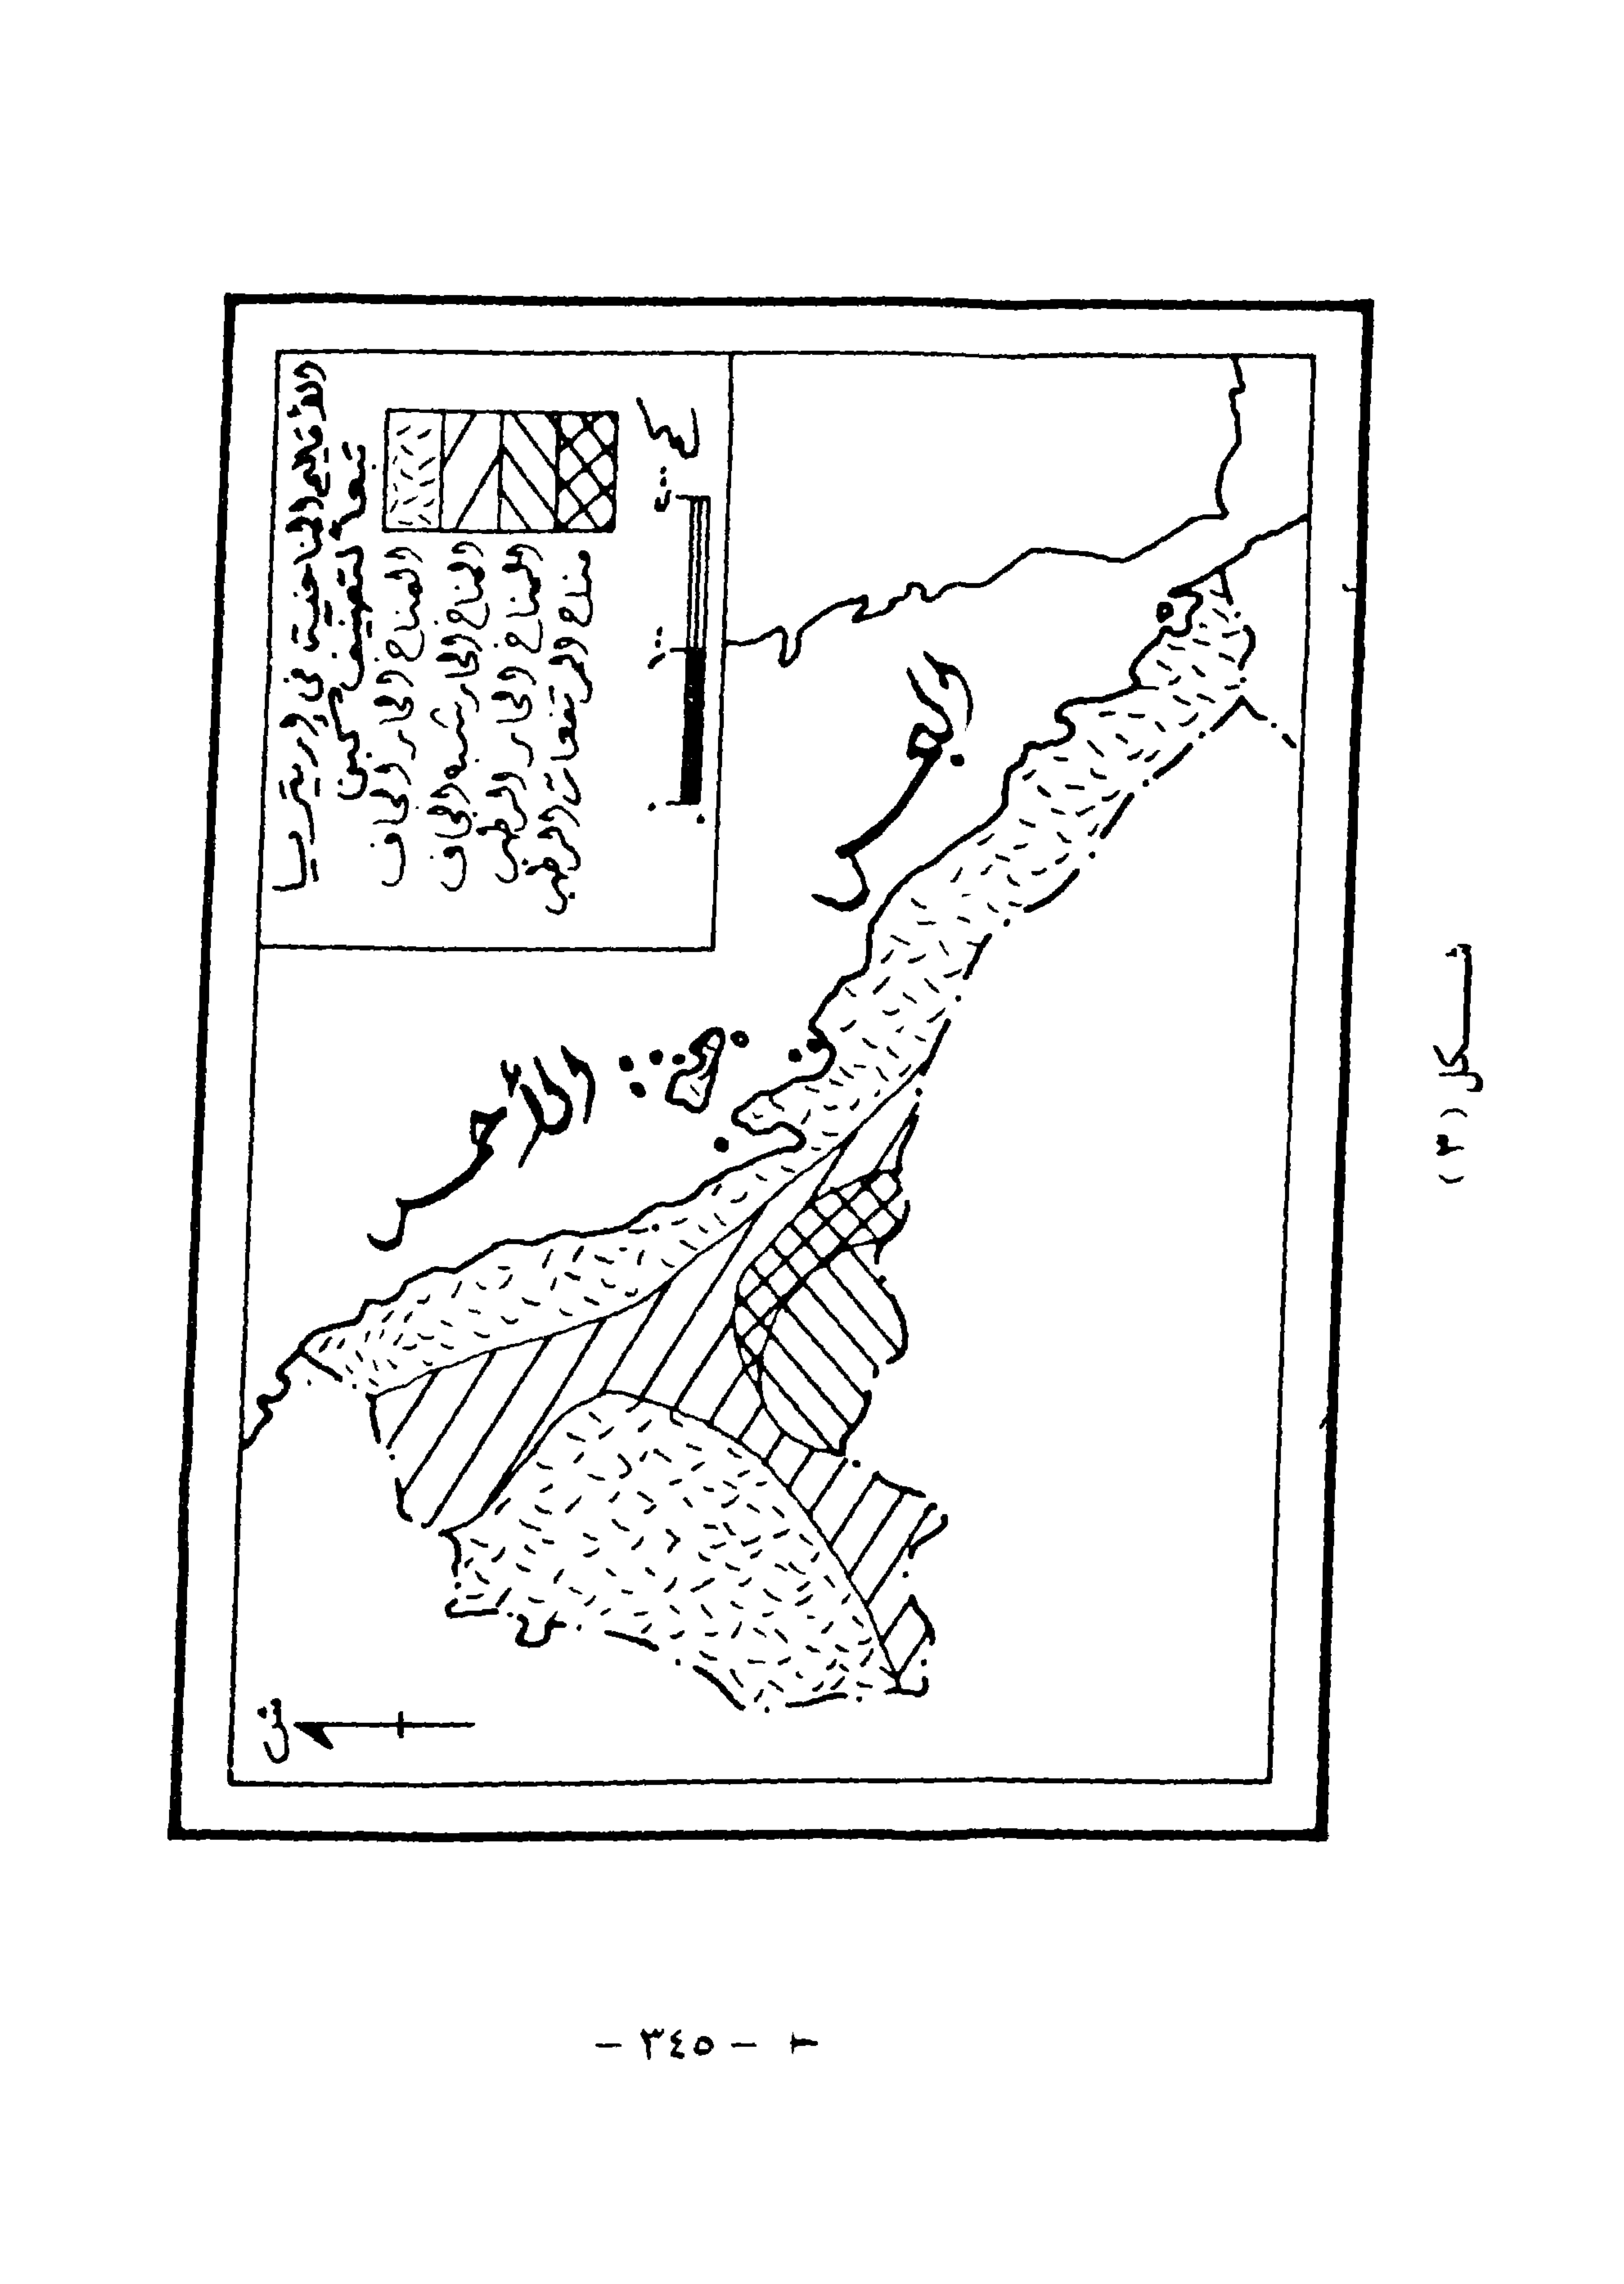 الأقاليم المناخية في إريتريا
تبعاً لتصنيف كبن
المناخ الحار الجاف
المناخ الحار شبه الجاف
المناخ الحار الرطب
مناخ المرتفعات الرطب
كم
٢٠٠
١٠٠
٠
البحر
الأحمر
ش
شكل (٣)
- ٣٤٥ -